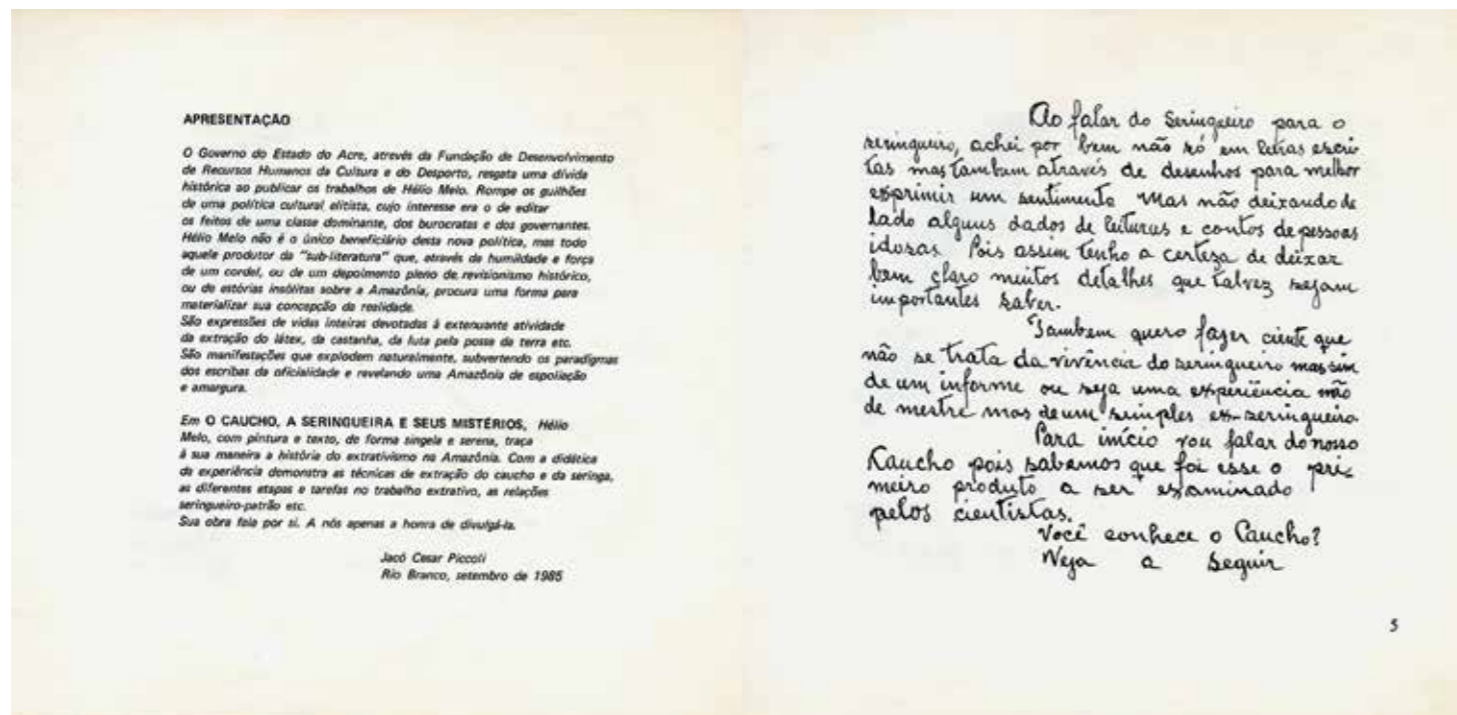 APRESENTAÇÃO
O Governo do Estado do Acre, através da Fundação de Desenvolvimento
de Recursos Humanos da Cultura e do Desporto, resgata uma dívida
histórica ao publicar os trabalhos de Hélio Melo. Rompe os guilhões
de uma política cultural elitista, cujo interesse era o de editar
os feitos de uma classe dominante, dos burocratas e dos governantes.
Hélio Melo não é o único beneficiário desta nova política, mas todo
aquele produtor da "sub-literatura" que, através da humildade e força
de um cordel, ou de um depoimento pleno de revisionismo histórico,
ou de estórias insólitas sobre a Amazônia, procura uma forma para
materializar sua concepção da realidade.
São expressões de vidas inteiras devotadas à extenuante atividade
da extração do látex, da castanha, da luta pela posse da terra etc.
São manifestações que explodem naturalmente, subvertendo os paradigmas
dos escribas da oficialidade e revelando uma Amazônia de espoliação
e amargura.
Em O CAUCHO, A SERINGUEIRA E SEUS MISTÉRIOS, Hélio
Melo, com pintura e texto, de forma singela e serena, traça
à sua maneira a história do extrativismo na Amazônia. Com a didática
da experiência demonstra as técnicas de extração do caucho e da seringa,
as diferentes etapas e tarefas no trabalho extrativo, as relações
seringueiro-patrão etc.
Sua obra fala por si. A nós apenas a honra de divulgá-la.
Jacó Cesar Piccoli
Rio Branco, setembro de 1985
Ao falar do Seringueiro para o
seringueiro, achei por bem não só em letras escri
tas mas tambem através de desenhos para melhor
exprimir um sentimento Mas não deixando de
lado alguns dados de leituras e contos de pessoas
idosas Pois assim tenho a certeza de deixar
bem claro muitos detalhes que talvez sejam
importantes saber.
Tambem quero fazer ciente que
não se trata da vivência do seringueiro mas sim
de um informe ou seja uma experiência não
de mestre mas de um simples ex-seringueiro.
Para início vou falar do nosso
Caucho pois sabemos que foi esse o pri
meiro produto a ser examinado
pelos cientistas.
Você conhece o Caucho?
Veja a Seguir
5